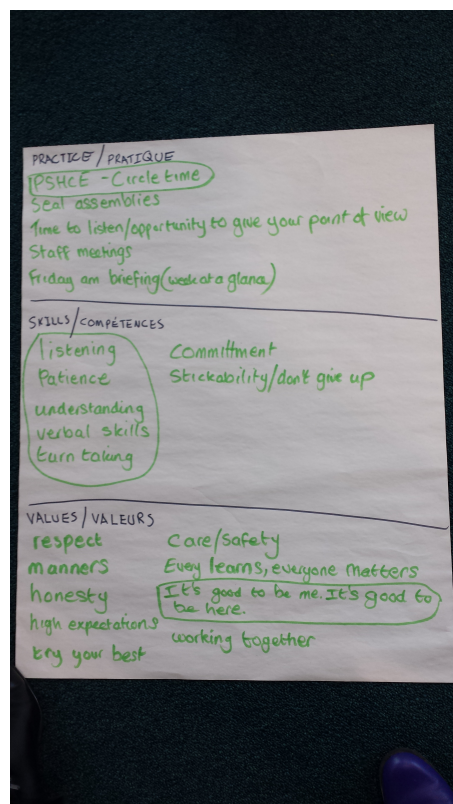 PRACTICE/PRATIQUE
PSHCE - Circle time
Seal assemblies
Time to listen/opportunity to give your point of view
Staff meetings
Friday am briefing (week at a glance)
SKILLS/COMPÉTENCES
listening
Patience
understanding
verbal skills
turn taking
Committment
Stickability/don't give up
VALUES/VALEURS
respect
manners
honesty
high expectations
try your best
Care/Safety
Every learns, everyone matters
It's good to be me. It's good to
be here.
working together